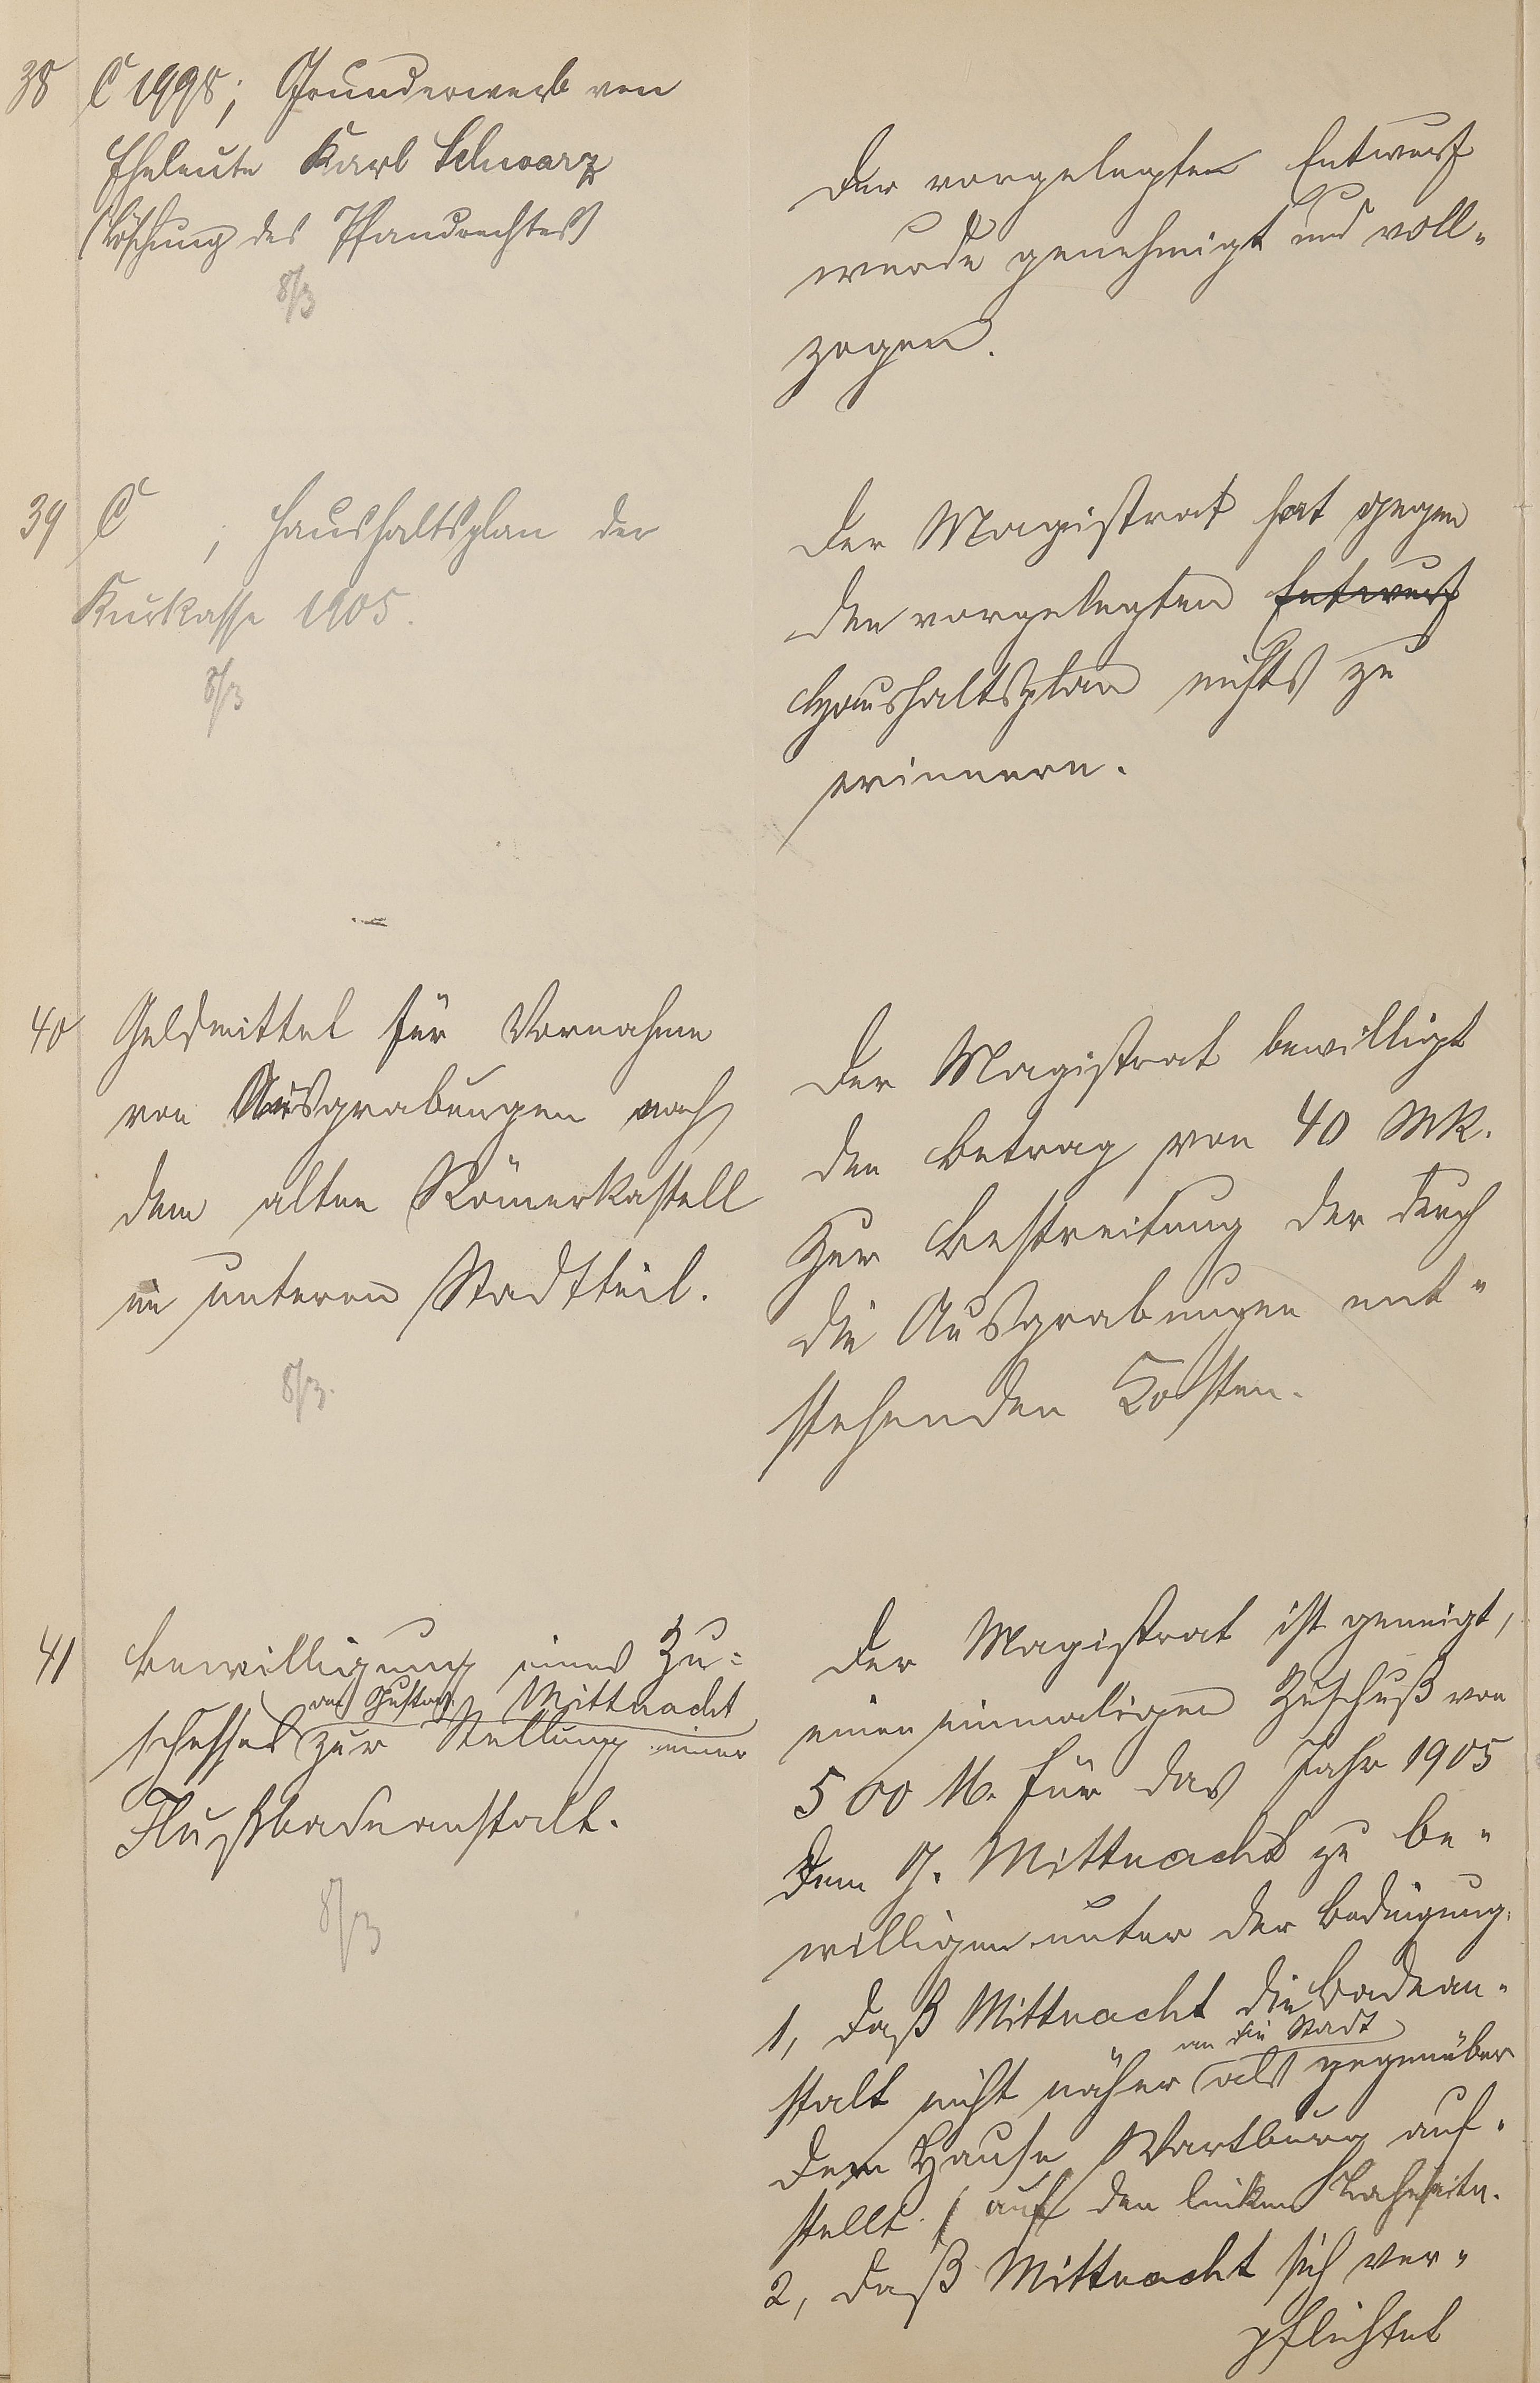 38 C 1998; Grunderwerb von
Eheleute Karl Schwarz
(Löschung des Pfandrechtes)
8/3
Der vorgelegte Entwurf
wurde genehmigt und voll-
zogen.
39 C ; Haushaltsplan der
Kurkasse 1905.
8/3
Der Magistrat hat gegen
den vorgelegten Entwurf
Haushaltsplan nichts zu
erinnern.
40 Geldmittel für Vornahme
von Ausgrabungen nach
dem alten Römerkastell
im unteren Stadtteil.
8/3.
Der Magistrat bewilligt
den Betrag von 40 Mk.
zur Bestreitung der durch
die Ausgrabungen ent-
stehenden Kosten.
41 Bewilligung eines Zu-
an Gustav Mittnacht
schusses zur Stellung einer
Flußbadeanstalt.
8/3
Der Magistrat ist geneigt,
einen einmaligen Zuschuß von
500 M. für das Jahr 1905
dem G. Mittnacht zu be-
willigen unter der Bedingung,
1, daß Mittnacht die Badean-
an die Stadt
stalt nicht näher als gegenüber
dem Hause Wartburg auf-
stellt (auf der linken Lahnseite.
2, daß Mittnacht sich ver-
pflichtet